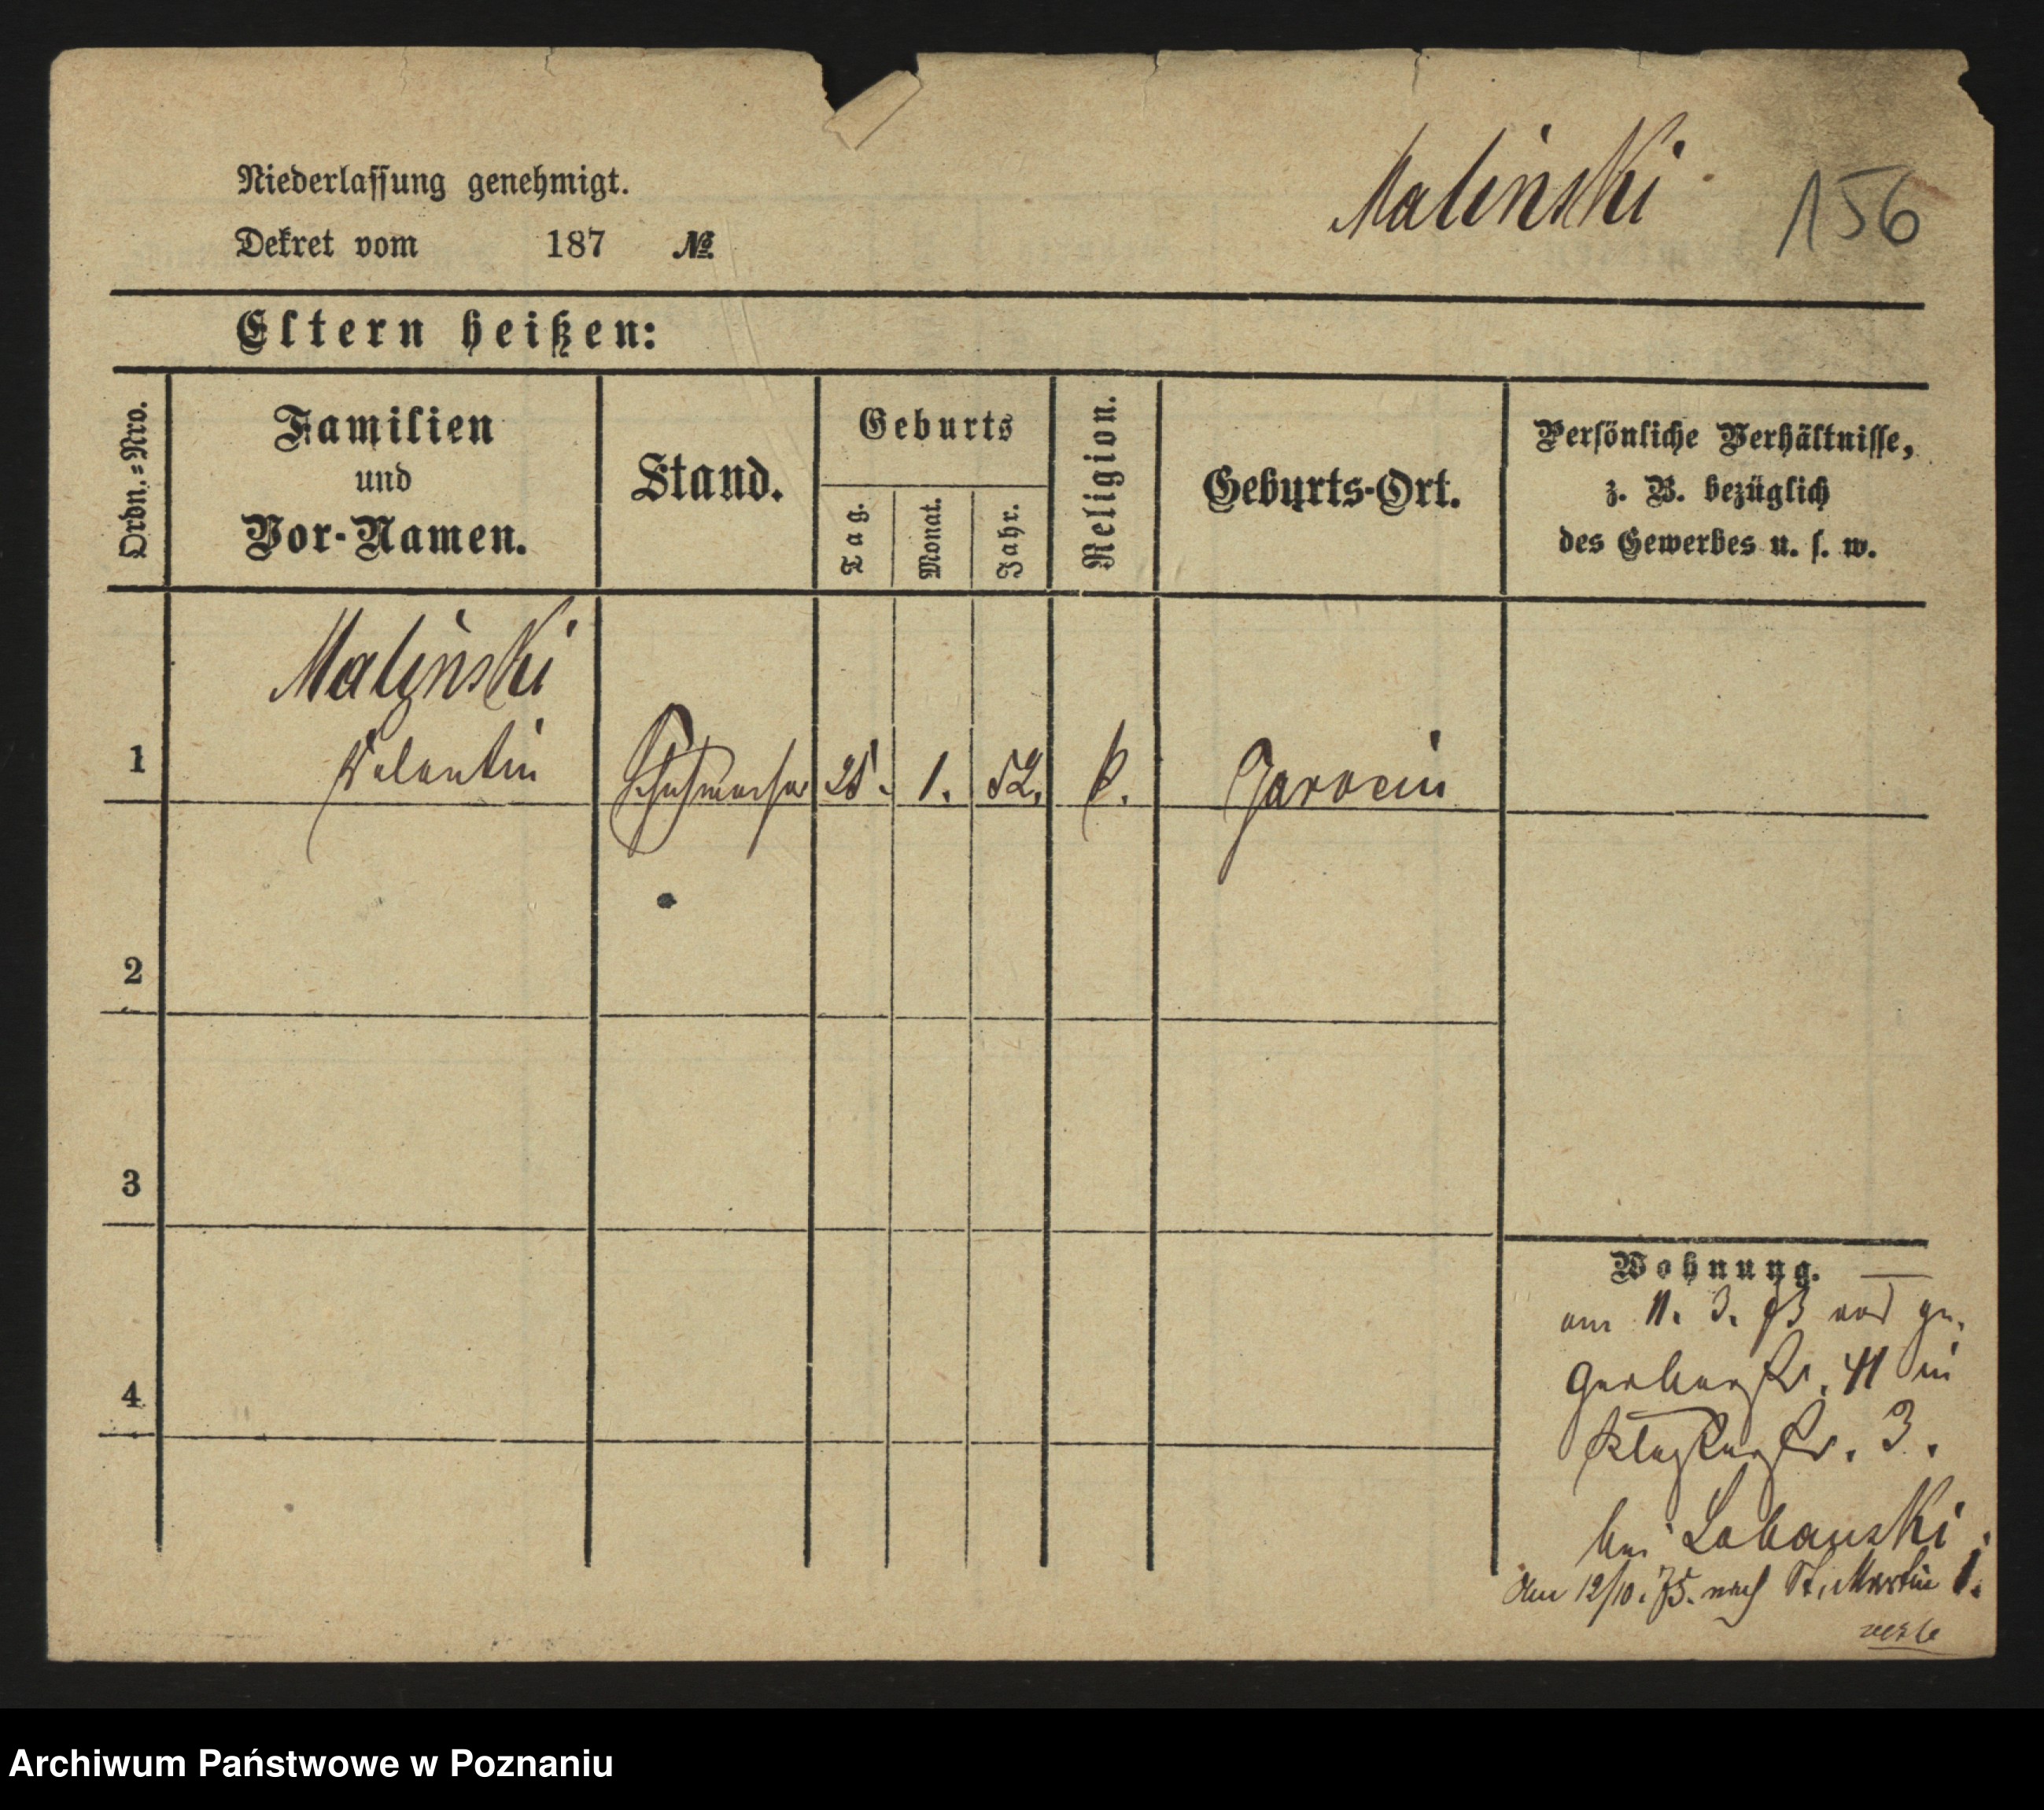 Malinski 156
Niederlassung genehmigt.
Dekret vom 187 №
Eltern heißen:
Ordn.=Nro.
Familien
und
Vor-Namen.
Stand.
Geburts
Tag.
Monat.
Jahr.
Religion.
Geburts-Ort.
Persönliche Verhältnisse,
z. B. bezüglich
des Gewerbes u. s. w.
Malinski
1 Valentin Schuhmacher 25. 1. 52. k. Jarocin
2
3
4
Wohnung.
am 11. 3. 73 von
Gerberstr. 41 in
3.
bei Labanski
Am 12/10. 75. nach St. Martin 1.
Archiwum Państwowe w Poznaniu